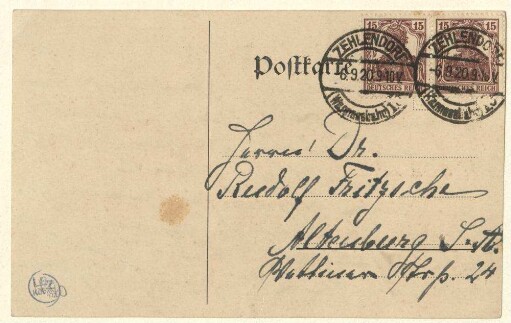 15 15
DEUTSCHES REICH
ZEHLENDORF ZEHLENDORF
-6.9.20.9-10V -6.9.20.9-10V
(Wannseebahn) (Wannseebahn)
Postkarte
Herrn Dr.
Rudolf Fritzsche
Altenburg S.-A.
Wettiner Str. 24